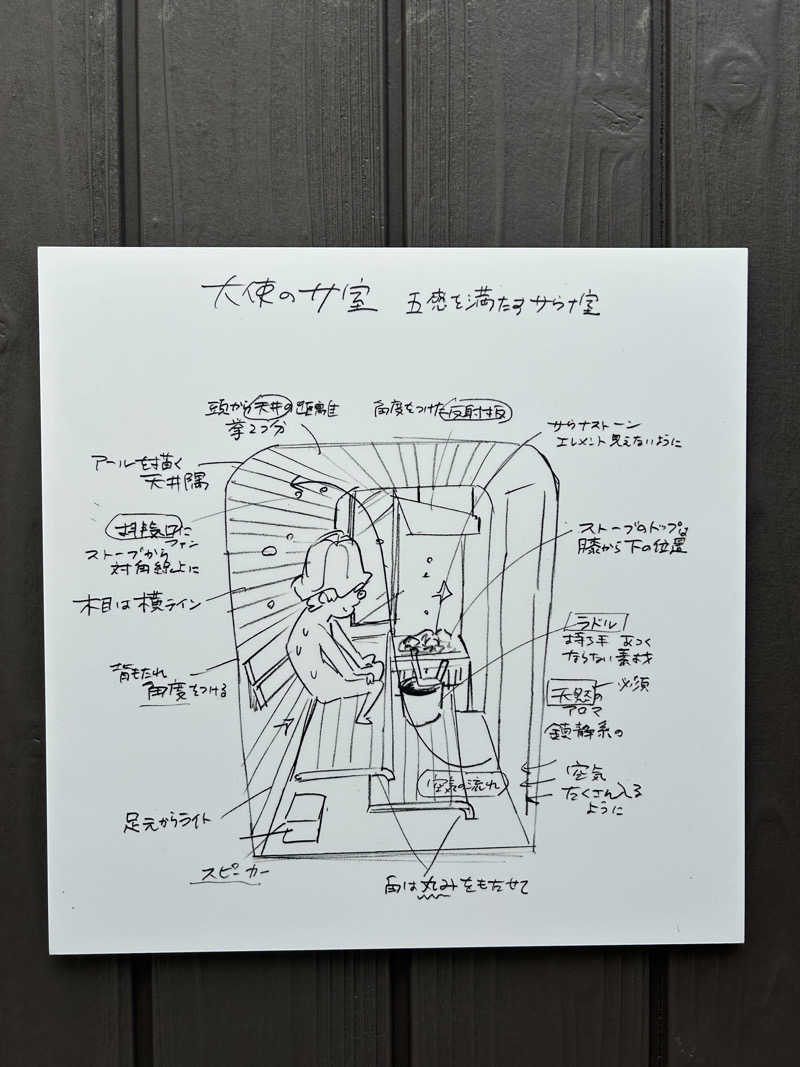 大使のサ室 五感を満たすサウナ室
頭から天井の距離
拳2つ分
角度をつけた反射板
サウナストーン
エレメント見えないように
アールを描く
天井隅
排換気口に
ファン
ストーブから
対角線上に
ストーブのトップは
膝から下の位置
木目は横ライン
ラドル
持つ手 あつく
ならない素材
背もたれ
角度をつける
必須
天然の
アロマ
鎮静系の
空気の流れ
空気
たくさん入る
ように
足元からライト
スピーカー
角は丸みをもたせて